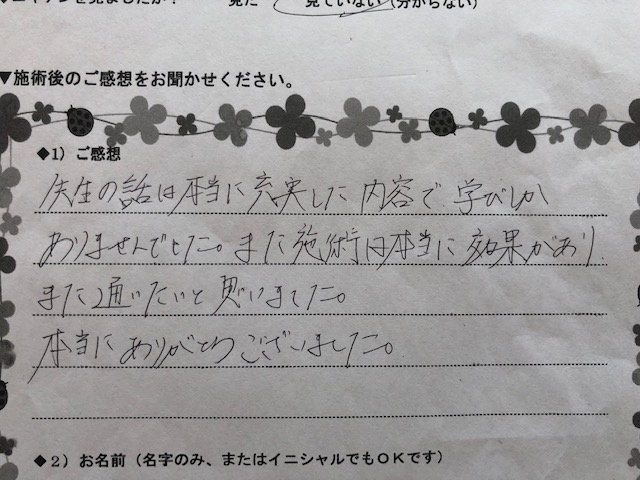 見たか？ 見た 見ていない（分からない）
▼施術後のご感想をお聞かせください。
◆1）ご感想
先生の話は本当に充実した内容で 学びしか
ありませんでした。また施術は本当に効果があり
また通いたいと思いました。
本当にありがとうございました。
◆2）お名前（名字のみ、またはイニシャルでもOKです）